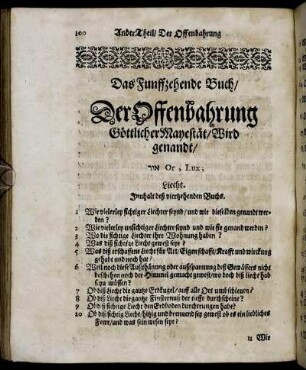 100 Ander Theil / Der Offenbahrung
Das Funffzehende Buch /
Der Offenbahrung
Göttlicher Mayestät / Wird
genandt /
אור Or, Lux,
Liecht.
Innhalt deß vierzehenden Buchs.
1 Wie vielerley sichtiger Liechter seynd / und wie dieselben genandt wer-
den?
2 Wie vielerley unsichtiger Liechter seynd und wie sie genandt werden?
3 Wo die sichtige Liechter ihre Wohnung haben?
4 Was diß sichtige Liecht gewest seye?
5 Was diß erschaffene Liecht für Art / Eigenschafft / Krafft und würckung
gehabt und noch hat /
6 Weil noch diese Außthörung oder außspannung deß Gewässers nicht
beschehen noch der Himmel gemacht gewest / wo dann diß liecht hab
seyn müssen?
7 Ob diß Liecht die gantze Erdkugel / auff alle Ort umbschienen /
8 Ob diß Liecht die gantze Finsternuß der tieffe durchscheine?
9 Ob diß sichtige Liecht den Erdboden durchtrungen habe?
10 Ob diß sichtig Liecht / hitzig und brennend sey gewest ob es ein liebliches
Fewr / und was sein wesen seye?
11 Wie